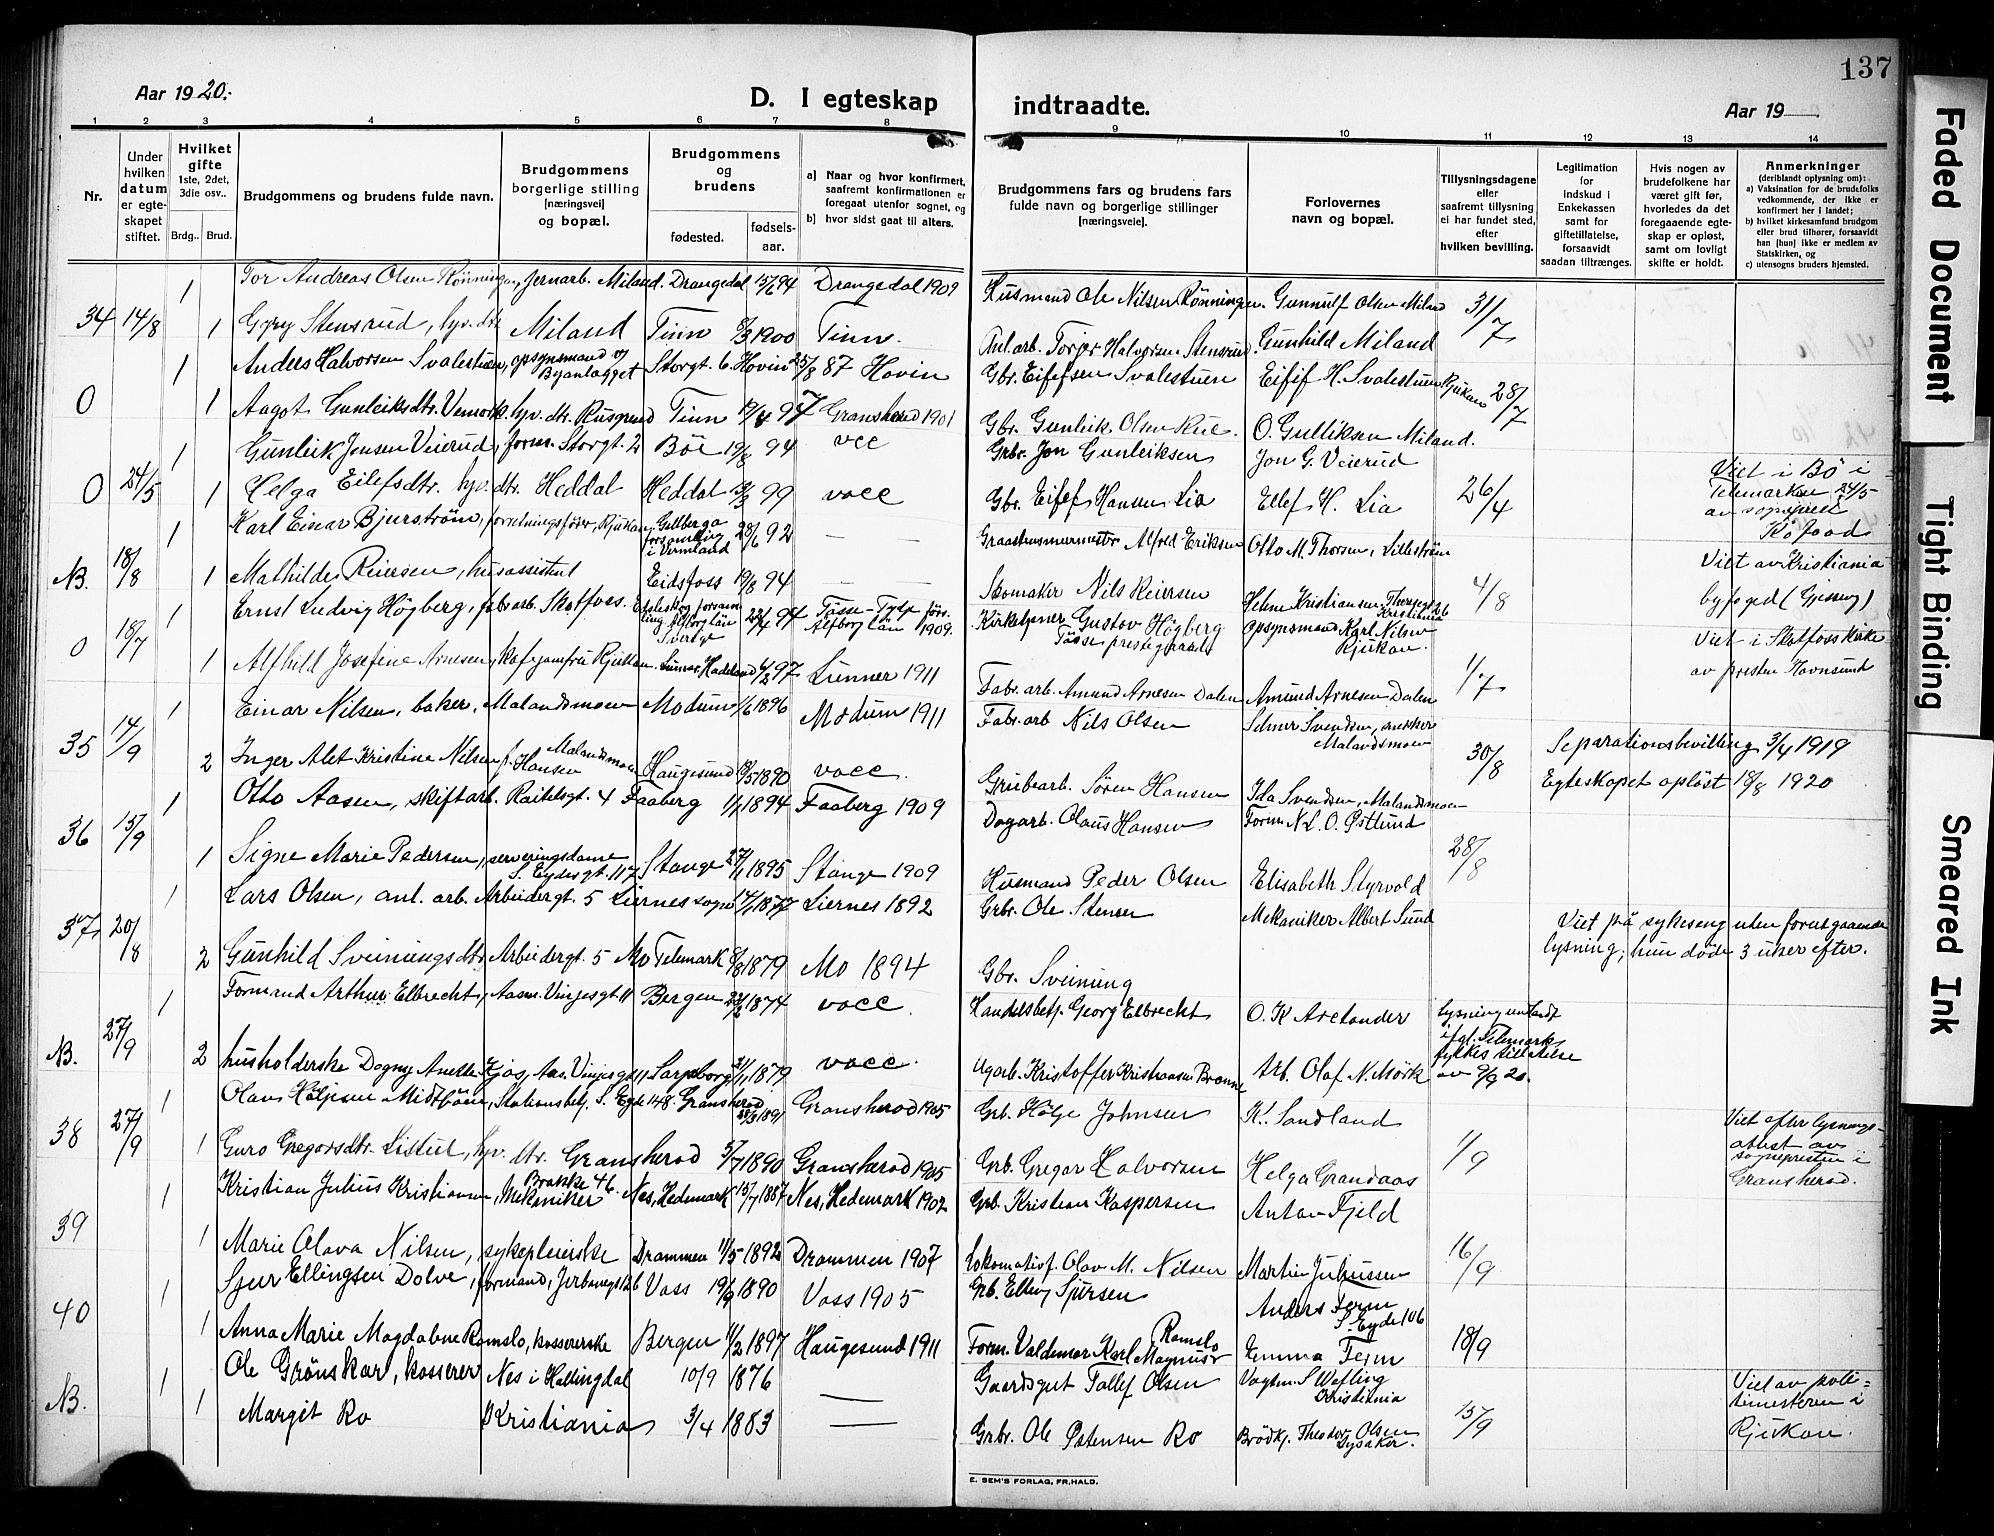 137
Aar 1920.
D. I egteskap
indtraadte.
Aar 19
1 2 3 4 5 6 7 8 9 10 11 12 13 14
Nr.
Under hvilken datum er egteskapet stiftet.
Hvilket gifte 1ste, 2det, 3die osv..
Brdg.. Brud.
Brudgommens og brudens fulde navn.
Brudgommens borgerlige stilling [næringsvei] og bopæl.
Brudgommens og brudens
fødested. fødsels-aar.
a) Naar og hvor konfirmert, saafremt konfirmationen er foregaat utenfor sognet, og
b) hvor sidst gaat til alters.
Brudgommens fars og brudens fars fulde navn og borgerlige stillinger [næringsveie].
Forlovernes navn og bopæl.
Tillysningsdagene eller saafremt tillysning ei har fundet sted, efter hvilken bevilling.
Legitimation for indskud i Enkekassen samt for giftetillatelse, forsaavidt saadan tiltrænges.
Hvis nogen av brudefolkene har været gift før, hvorledes da det foregaaende egteskap er opløst, samt om lovligt skifte er holdt.
Anmerkninger (deriblandt oplysning om):
a) Vaksination for de brudefolks vedkommende, der ikke er konfirmert her i landet;
b) hvilket kirkesamfund brudgom eller brud tilhører, forsaavidt han [hun] ikke er medlem av Statskirken, og
c) utensogns bruders hjemsted.
1 Tor Andreas Olsen Rönningen, jernarb. Miland. Drangedal 15/6 94 Drangedal 1909 Husmand Ole Nilsen Rønningen. Gunnulf Olsen Miland 31/7
34 14/8 1 Gyry Stensrud, hv. dtr Miland Tinn 8/3 1900 Tinn. Anl. arb. Torjer Halvorsen Stensrud. Gunhild Miland
1 Anders Halvorsen Svalestuen, opsynsmand v/ Byanlægget Storgt. 6. Hovin 25/8 87 Hovin Gbr. Eifefsen Svalestuen Eifif H. Svalestuen Rjukan 28/7
0 1 Aagot Gunleiksdtr. Vemork, hv. dtr. Rusgrend Tinn 97 Gransherad 1901 Gbr. Gunleik Olsen Rue. O. Gulliksen Miland.
1 Gunleik Jonsen Veierud, form. Storgt. 2 Böe 19/8 94 vcc Grbr. Jon Gunleiksen Jon G. Veierud
0 24/5 1 Helga Eilefsdtr. hv. dtr. Heddal Heddal 99 vacc Gbr. Eifef Hansen Lia Ellef H. Lia 26/4 Viet i Bö i Telemarken 24/5 av sogneprest Kofoad
1 Karl Einar Bjurström, forretningsfører, Rjukan Gillberga forsamling i Vermland 28/6 92 — — Graastensmurmester Alfred Eriksen Otto M. Thorsen, Lilleström
NB. 18/8 1 Mathilde Reiersen, husassistent Eidsfoss 19/8 94 — — Skomaker Nils Reiersen Helene Kristiansen, Kristiania 4/8 Viet av Kristiania byfoged (Gjessing)
1 Ernst Ludvig Högberg, fabr arb. Skotfoss. 22/4 94 1909. Kirketjener Gustov Högberg Tösse prestegaard Opsynsmand Karl Nilsen Rjukan.
0 18/7 1 Alfhild Josefine Arnesen, kafejomfru Rjukan. Lunner, Hadeland 97 Lunner 1911 Fabr. arb. Amund Arnesen Dalen Amund Arnesen Dalen 1/7 Viet i Skotfoss kirke av presten Havnsund
1 Einar Nilsen, baker, Malandsmoen Modum 1/6 1896 Modum 1911 Fabr. arb Nils Olsen Selmer Svendsen, snekker Malandsmoen
35 1 2 Inger Alet Kristine Nilsen f. Hansen Malandsmoen Haugesund 1890 vacc. Grubearb. Sören Hansen Ida Svendsen, Malandsmoen 30/8 Separationsbevilling 3/4 1919 Egteskapet oplöst 18/8 1920
1 Otto Aasen, skiftarb. Raikelsgt. 4 Faaberg 1/1 1894 Faaberg 1909 Dagarb. Olaus Hansen Form. N. L. O. Østlund
36 15/9 1 Signe Marie Pedersen, serveringsdame S. Eydesgt. 117 Stange 27/1 1895 Stange 1909 Husmand Peder Olsen Elisabeth Styrvold 28/8
1 Lars Olsen, anl. arb. Arbeidergt. 5 Liernes sogn 1877 Liernes 1892 Grbr. Ole Stensen Mekaniker Albert Sund
37 20/8 2 Gunhild Sveinungsdtr. Arbeidergt. 5 Mo Telemark 1879 Mo 1894 Gbr. Sveinung Viet på sykeseng uten forutgaaende lysning; hun döde 3 uker efter.
1 Formand Arthur Elbrecht, Aasm. Vinjesgt 11 Bergen 1874 vacc. Handelsbetj. Georg Elbrecht O. K Arctander Lysning undladt ifgl. Telemark fylkes tillatelse av 9/9 20.
NB. 27/9 2 husholderske Dagny Anette Kjos, Aas. Vinjesgt 11 Sarpsborg 1879 vacc. Ugarb. Kristoffer Kristiansen Arb. Olaf N. Mörk
1 Olav Höljesen Midtböen, Stationsbetj. S. Eyde 148. Gransherad 1891 Gransherad 1905 Grb. Hölje Johnsen K. Sandland
38 27/9 1 Guro Gregarsdtr. Listul, hv. dtr. Gransherad 5/7 1890 Gransherad 1905 Grb. Gregar Halvorsen Helga Grandaas 1/9 Viet efter lysningsattest av sognepresten i Gransherad.
1 Kristian Julius Kristiansen, Mekaniker Brakke 46. Nes, Hedemark 15/7 1887 Nes, Hedemark 1902 Grb. Kristian Kaspersen Anton Fjeld
39 1 Marie Olava Nilsen, sykepleierske Drammen 11/5 1892 Drammen 1907 Lokomotivf. Olav M. Nilsen Martin Juliussen 16/9
1 Sjur Ellingsen Dolve, formand, Voss 19/9 1890 Voss 1905 Grb. Elling Sjursen Anders Ferm S. Eyde 106
40 1 Anna Marie Magdalene Ramslo, kassererske Bergen 11/2 1897 Haugesund 1911 Form. Valdemar Karl Magnus Ramslo Emma Ferm 18/9
1 Ole Grönskar, kasserer Nes i Hallingdal 10/9 1876 — Gaardsgut Tollef Olsen Vogtm. S Wefling Kristiania
NB. 1 Margit Ro Kristiania 3/4 1883 — Grbr. Ole Østensen Ro Brödkj. Theodor Olsen Lysaker. 15/9 Viet av politimesteren i Rjukan.
E. SEM'S FORLAG, FR.HALD.
Faded Document
Tight Binding
Smeared Ink